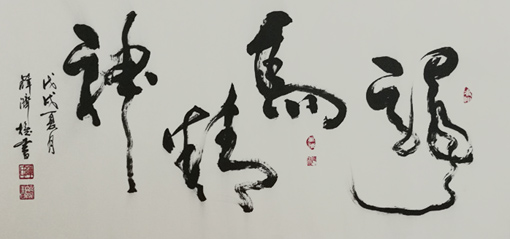 龍馬精神
戊戌夏月
書